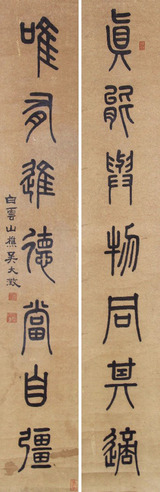 眞能與物同其適
唯有進德當自彊
白雲山樵吳大澂